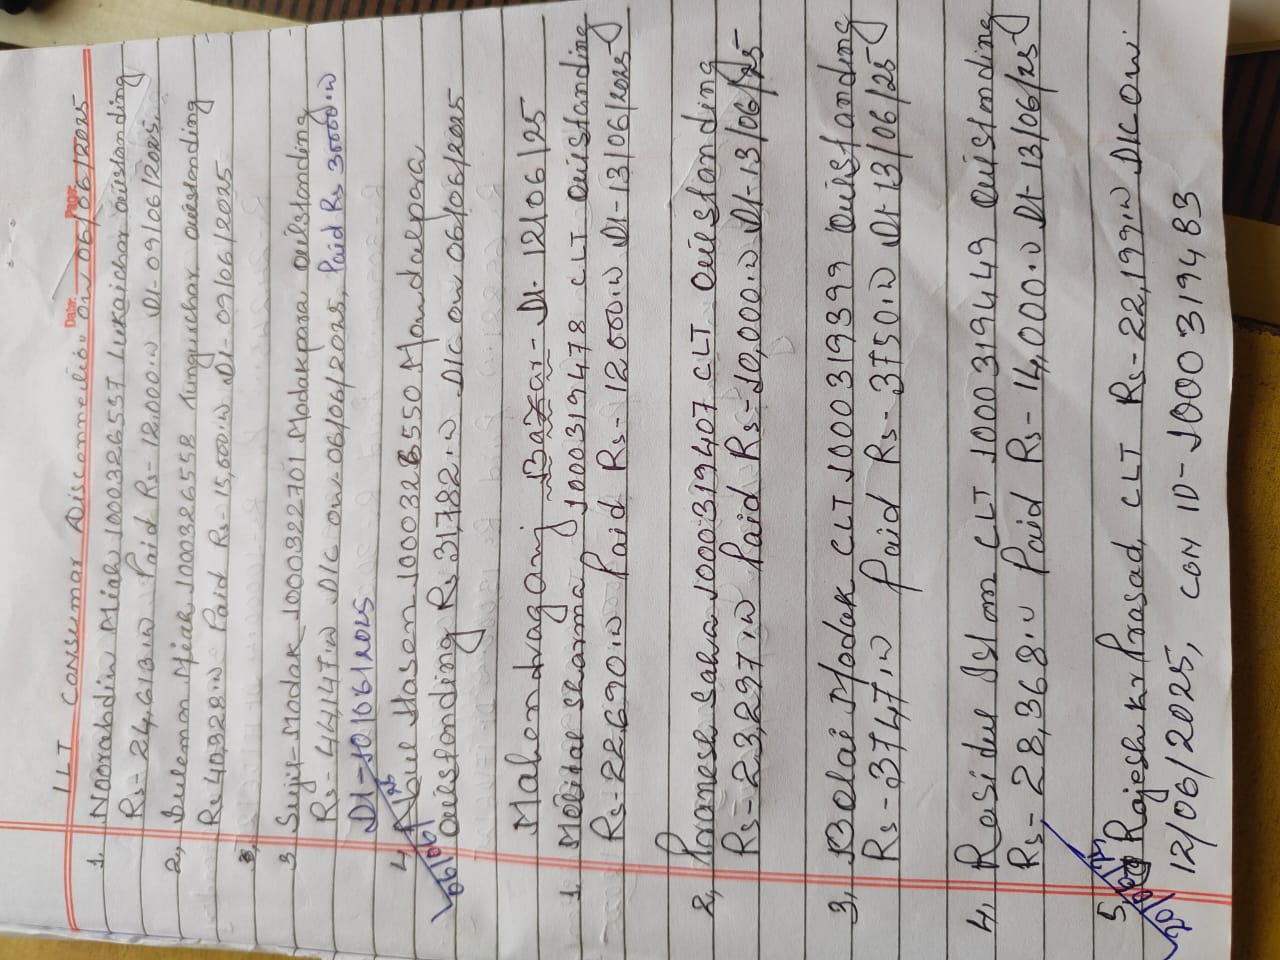 Date: Page:
1 LT Consumar Disconnection on 06/06/2025
1. Noorabdin Miah 1000326537 Lukaichar outstanding
Rs- 24,613.00 Paid Rs- 12,000.00 Dt- 09/06/2025.
2, Miah 100032655B outstanding
Rs 40,328.00 Paid Rs- 15,000.00 Dt- 09/06/2025
3,
3 Sujit Modak 1000322701 Modakpara outstanding
Rs- 44,147.00 D/C on- 06/06/2025, Paid Rs 30000.00
Dt- 10/06/2025
4, Abul Hasan Mondalpara
outstanding Rs 31,782.00 D/C on 06/06/2025
06/06/
Mahendraganj Bazar - Dt- 12/06/25
1. Sharma 1000319478 CLT outstanding
Rs- 22,690.00 Paid Rs- 12000.00 Dt- 13/06/2025
2, Pranesh Saha 1000319407 CLT outstanding
Rs- 23,297.00 Paid Rs- 10,000.00 Dt- 13/06/25
3, Bolai Modak CLT 1000319399 outstanding
Rs- 3747.00 Paid Rs- 3750.00 Dt 13/06/25
4. Rasidul Islam CLT 1000319449 outstanding
Rs- 28,368.00 Paid Rs- 14,000.00 Dt- 13/06/25
5, Rajesh kr Prasad, CLT Rs- 22,199.00 D/C on.
12/06/2025, CON ID- 1000319483